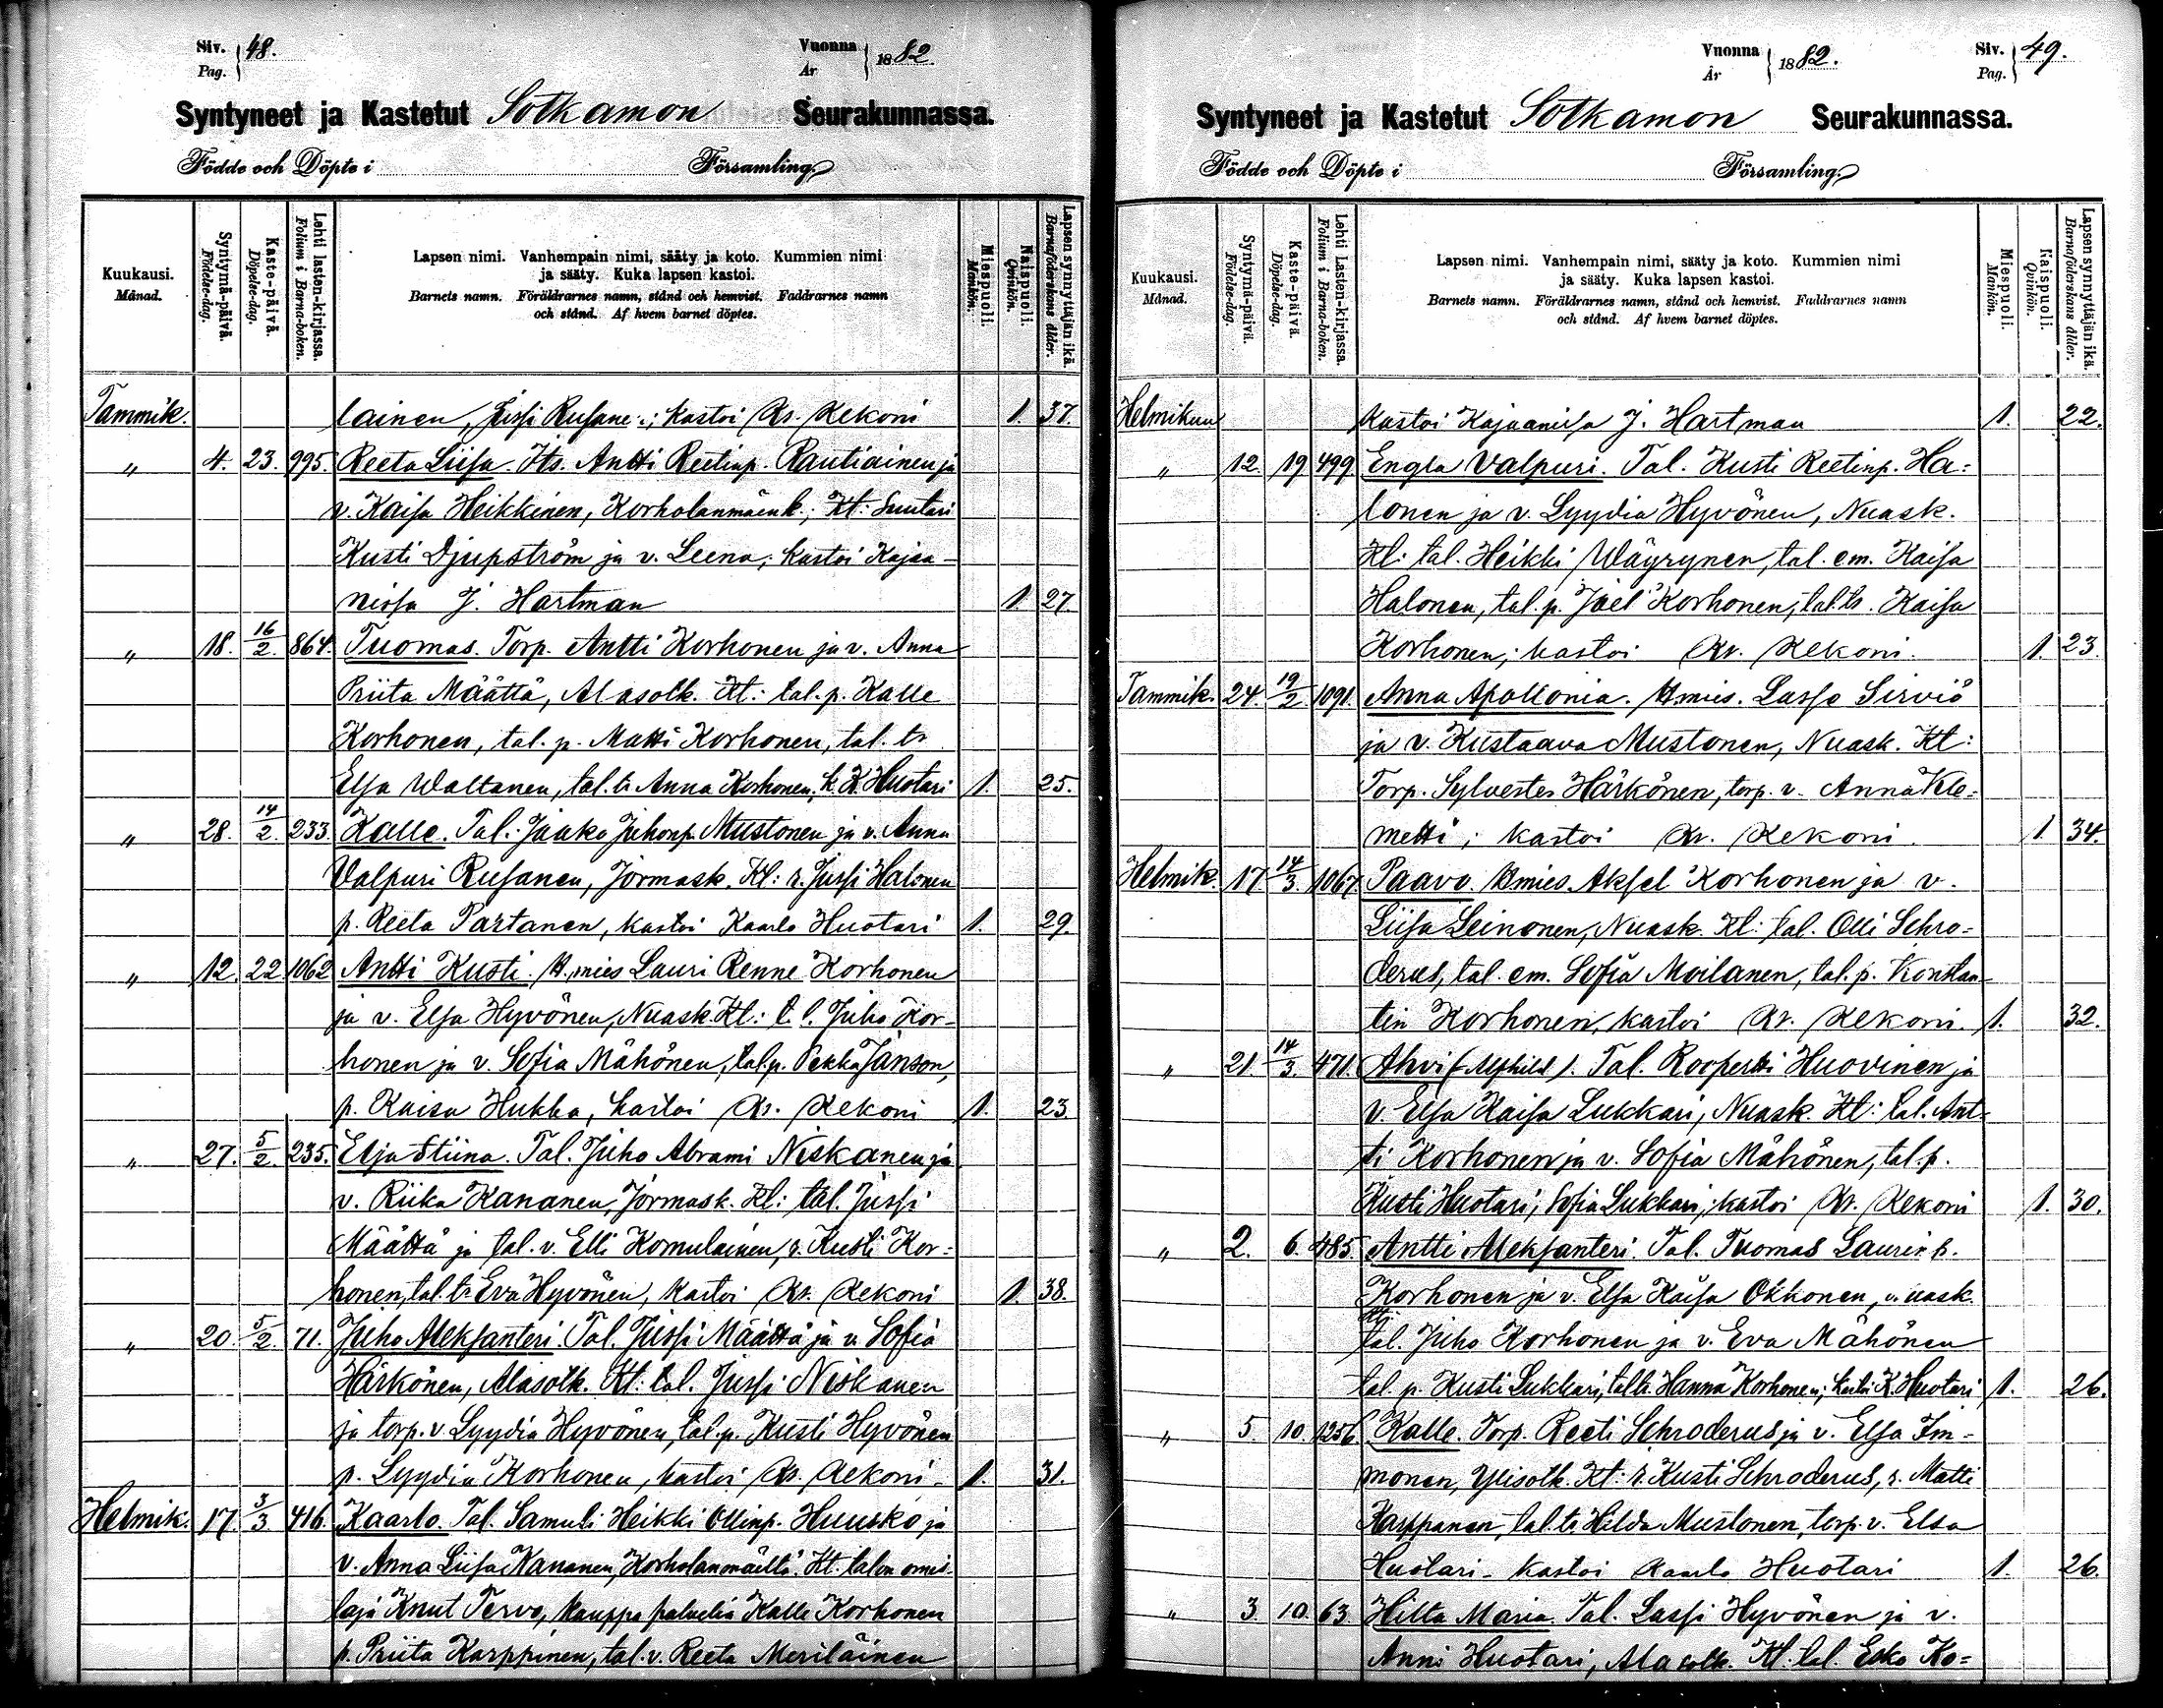 Siv. Pag. 48.
Vuonna År 1882.
Syntyneet ja Kastetut Sotkamon Seurakunnassa.
Födde och Döpte i Församling.
Kuukausi. Månad.
Syntymä-päivä. Födelse-dag.
Kaste-päivä. Döpelse-dag.
Lehti lasten-kirjassa. Folium i Barna-boken.
Lapsen nimi. Vanhempain nimi, sääty ja koto. Kummien nimi
ja sääty. Kuka lapsen kastoi.
Barnets namn. Föräldrarnes namn, stånd och hemvist. Faddrarnes namn
och stånd. Af hvem barnet döptes.
Miespuoli. Mankön.
Naispuoli. Qvinkön.
Lapsen synnyttäjän ikä. Barnaföderskans ålder.
Tammik. lainen, Jussi Rusane ; kastoi Kr. Kekoni 1. 37.
" 4. 23. 995. Reeta Liisa. Its. Antti Reetinp. Rautiainen ja
v. Kaisa Heikkinen, Korholanmäenk.; Kt: Suutari
Kusti Djupström ja v. Leena; kastoi Kajaa-
nissa J. Hartman 1. 27.
" 18. 16/2. 864. Tuomas. Torp. Antti Korhonen ja v. Anna
Priita Määttä, Alasotk. Kt: tal. p. Kalle
Korhonen, tal. p. Matti Korhonen, tal. tr
Elsa Waltanen, tal. tr Anna Korhonen, k. K. Huotari 1. 25.
" 28. 14/2. 233. Kalle. Tal. Jaako Juhonp. Mustonen ja v. Anna
Valpuri Rusanen, Jormask. Kt: r. Jussi Halonen
p. Reeta Partanen, kastoi Kaarlo Huotari 1. 29.
" 12. 22. 1062 Antti Kusti. It.mies Lauri Renne Korhonen
ja v. Elsa Hyvönen, Nuask. Kt: t. l. Juho Kor-
honen ja v. Sofia Mähönen, tal. p. Pekka Janson,
p. Kaisa Hukka, kastoi Kr. Kekoni 1. 23
" 27. 5/2. 235. Elja Stiina. Tal. Juho Abrami Niskanen ja
v. Riika Kananen, Jormask. Kt: tal. Jussi
Määttä ja tal. v. Elli Komulainen, r. Kusti Kor-
honen, tal. tr Eva Hyvönen, kastoi Kr. Kekoni 1. 38.
" 20. 5/2. 71. Juho Aleksanteri. Tal. Jussi Määttä ja v. Sofia
Härkönen, Alasotk. Kt: tal. Jussi Niskanen
ja torp. v. Lyydia Hyvönen, tal. p. Kusti Hyvönen
p. Lyydia Korhonen, kastoi Kr. Kekoni. 1. 31.
Helmik. 17. 3/3 416. Kaarlo. Tal. Samuli Heikki Ollinp. Huusko ja
v. Anna Liisa Kananen, Korholanmäeltä. Kt. talon omis-
taja Knut Tervo, kauppa palvelia Kalle Korhonen
p. Priita Karppinen, tal. v. Reeta Meriläinen
Vuonna År 1882.
Siv. Pag. 49.
Syntyneet ja Kastetut Sotkamon Seurakunnassa.
Födde och Döpte i Församling.
Kuukausi. Månad.
Syntymä-päivä. Födelse-dag.
Kaste-päivä. Döpelse-dag.
Lehti Lasten-kirjassa. Folium i Barna-boken.
Lapsen nimi. Vanhempain nimi, sääty ja koto. Kummien nimi
ja sääty. Kuka lapsen kastoi.
Barnets namn. Föräldrarnes namn, stånd och hemvist. Faddrarnes namn
och stånd. Af hvem barnet döptes.
Miespuoli. Mankön.
Naispuoli. Qvinkön.
Lapsen synnyttäjän ikä. Barnaföderskans ålder.
Helmikuu kastoi Kajaanissa J. Hartman 1. 22.
" 12. 19 499 Engla Valpuri. Tal. Kusti Reetinp. Ha-
lonen ja v. Lyydia Hyvönen, Nuask.
Kt: tal. Heikki Wäyrynen, tal. em. Kaisa
Halonen, tal. p. Joel Korhonen, tal. tr. Kaisa
Korhonen; kastoi Kr. Kekoni. 1. 23.
Tammik. 24. 19/2 1091. Anna Apollonia. It.mies. Lasse Sirviö
ja v. Kustaava Mustonen, Nuask. Kt:
Torp. Sylvester Härkönen, torp. v. Anna Kle-
metti; kastoi Kr. Kekoni. 1. 34.
Helmik. 17 14/3. 1067. Paavo. It.mies. Aksel Korhonen ja v.
Liisa Leinonen, Nuask. Kt: tal. Olli Schro-
derus, tal. em. Sofia Moilanen, tal. p. Konstan-
tin Korhonen, kastoi Kr. Kekoni. 1. 32.
" 21. 14/3. 471. Ahvi (Alfhild). Tal. Roopertti Huovinen ja
v. Elsa Kaisa Lukkari, Nuask. Kt: tal. Ant-
ti Korhonen ja v. Sofia Mähönen, tal. p.
Kusti Huotari, Sofia Lukkari, kastoi Kr. Kekoni 1. 30.
" 2. 6. 485. Antti Aleksanteri. Tal. Tuomas Laurinp.
Korhonen ja v. Elsa Kaisa Okkonen, nuask.
Kt: tal. Juho Korhonen ja v. Eva Mähönen
tal. p. Kusti Lukkari, tal. tr. Hanna Korhonen; kastoi K. Huotari 1. 26.
" 5. 10. 1256. Kalle. Torp. Reeti Schroderus ja v. Elsa Im-
monen, Ylisotk. Kt: r. Kusti Schroderus, r. Matti
Karppanen, tal. tr Hilda Mustonen, torp. v. Elsa
Huotari - kastoi Kaarlo Huotari 1. 26.
" 3. 10. 63. Hilta Maria. Tal. Lassi Hyvönen ja v.
Anni Huotari, Alasotk. Kt. tal. Esko Ko-